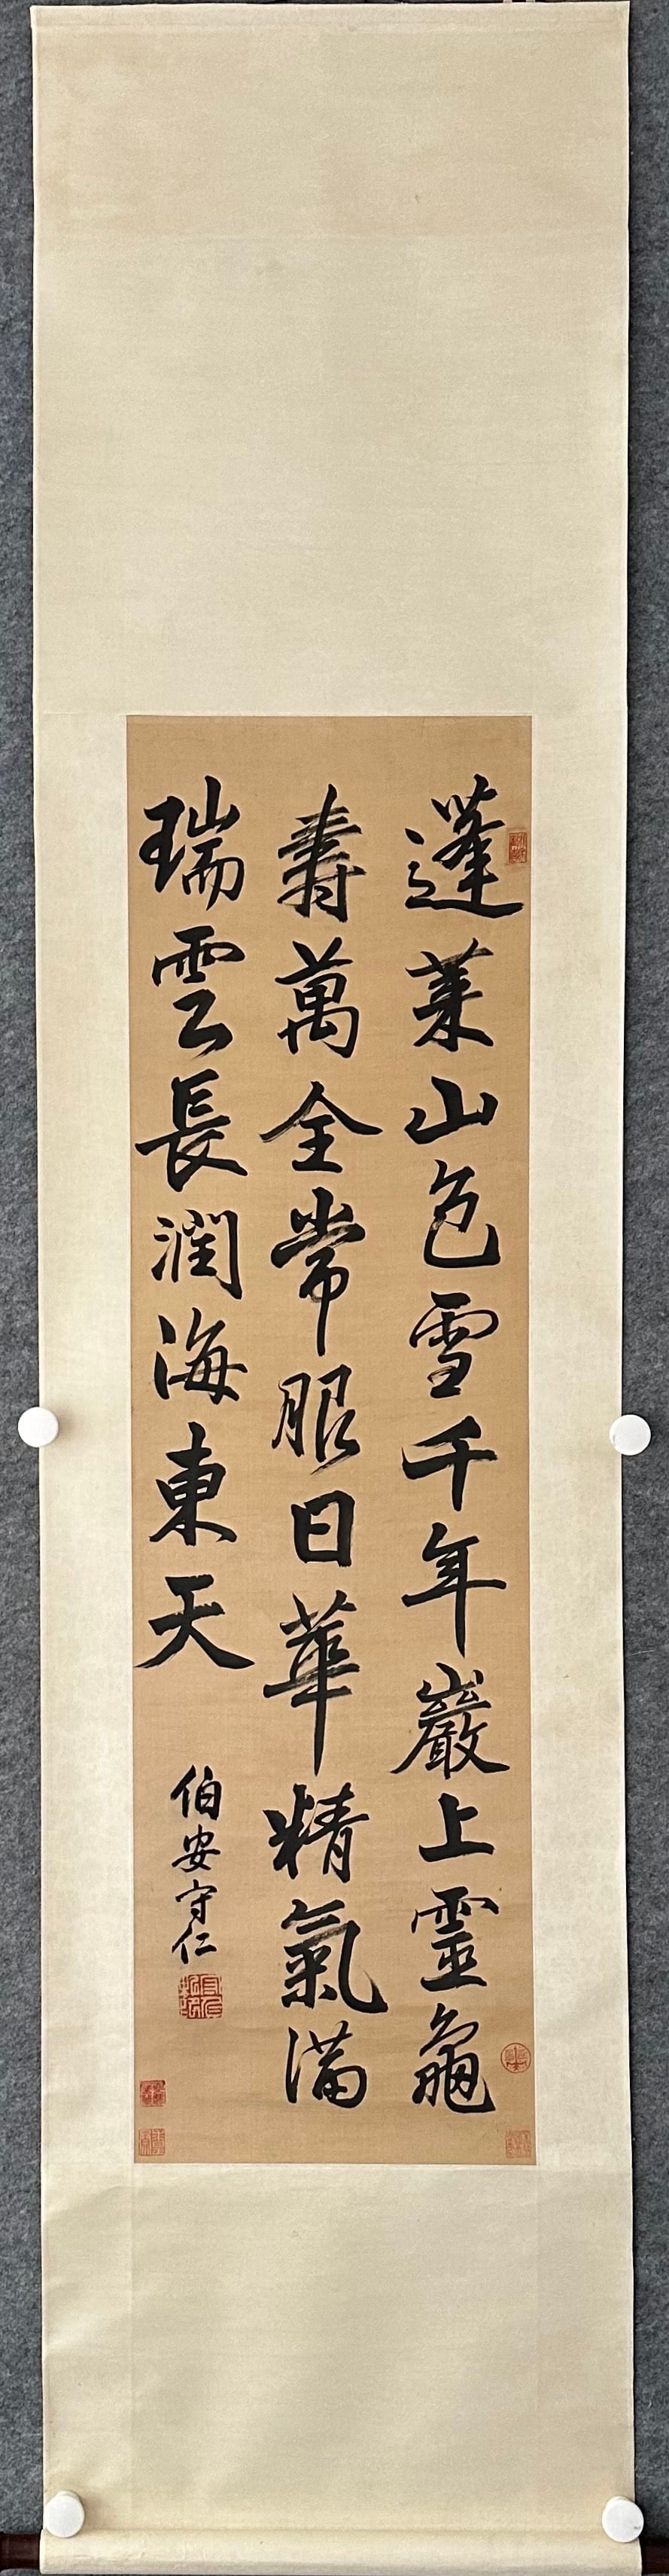 蓬萊山色雪千年巖上靈龜
壽萬全常服日華精氣滿
瑞雲長潤海東天
伯安守仁